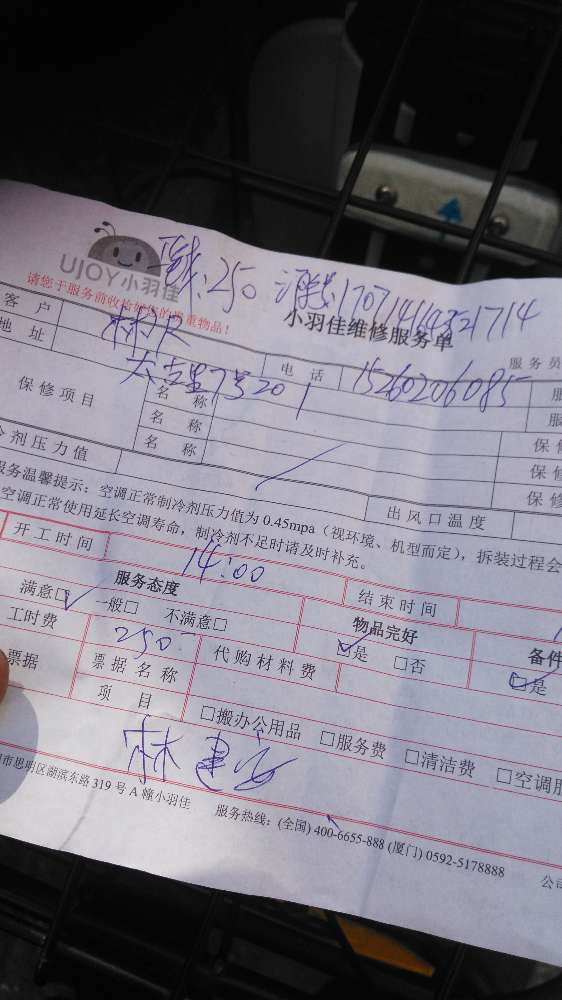 UJOY小羽佳
:250
17071414821714
请您于服务前收拾好您的贵重物品!
小羽佳维修服务单
客户 林 电话 15260206085 服务员
地址 7号201
保修项目 名称
名称 保修
名称 保修
冷剂压力值 出风口温度 保修
服务温馨提示:空调正常制冷剂压力值为0.45mpa(视环境、机型而定),拆装过程会
空调正常使用延长空调寿命,制冷剂不足时请及时补充。
开工时间 14:00 结束时间
服务态度 物品完好 备件
满意□ 一般□ 不满意□ ☑是 □否 ☑是
工时费 250 代购材料费
票据 票据名称
项目 □搬办公用品 □服务费 □清洁费 □空调服
林建
市思明区湖滨东路319号A幢小羽佳 服务热线:(全国)400-6655-888(厦门)0592-5178888 公司